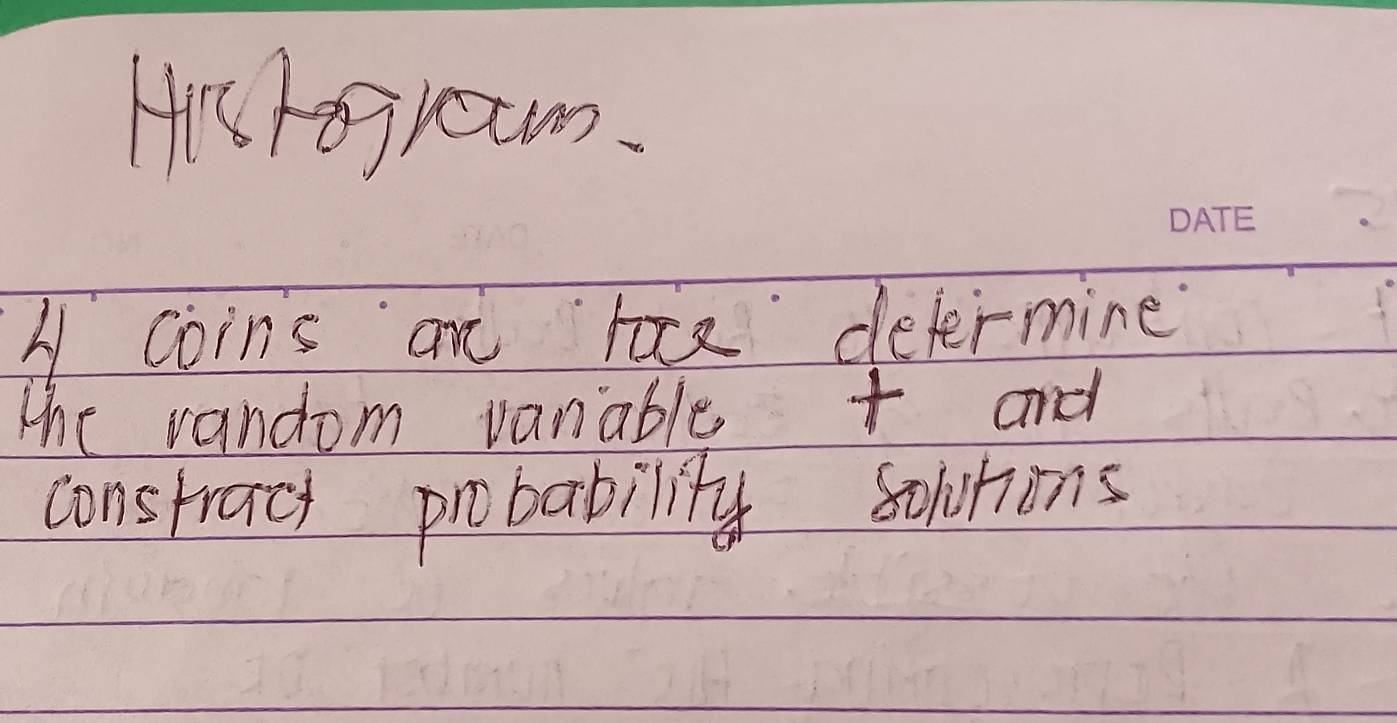 Histogram.
DATE
4 coins are toce determine
the random variable t and
constract probability solutions